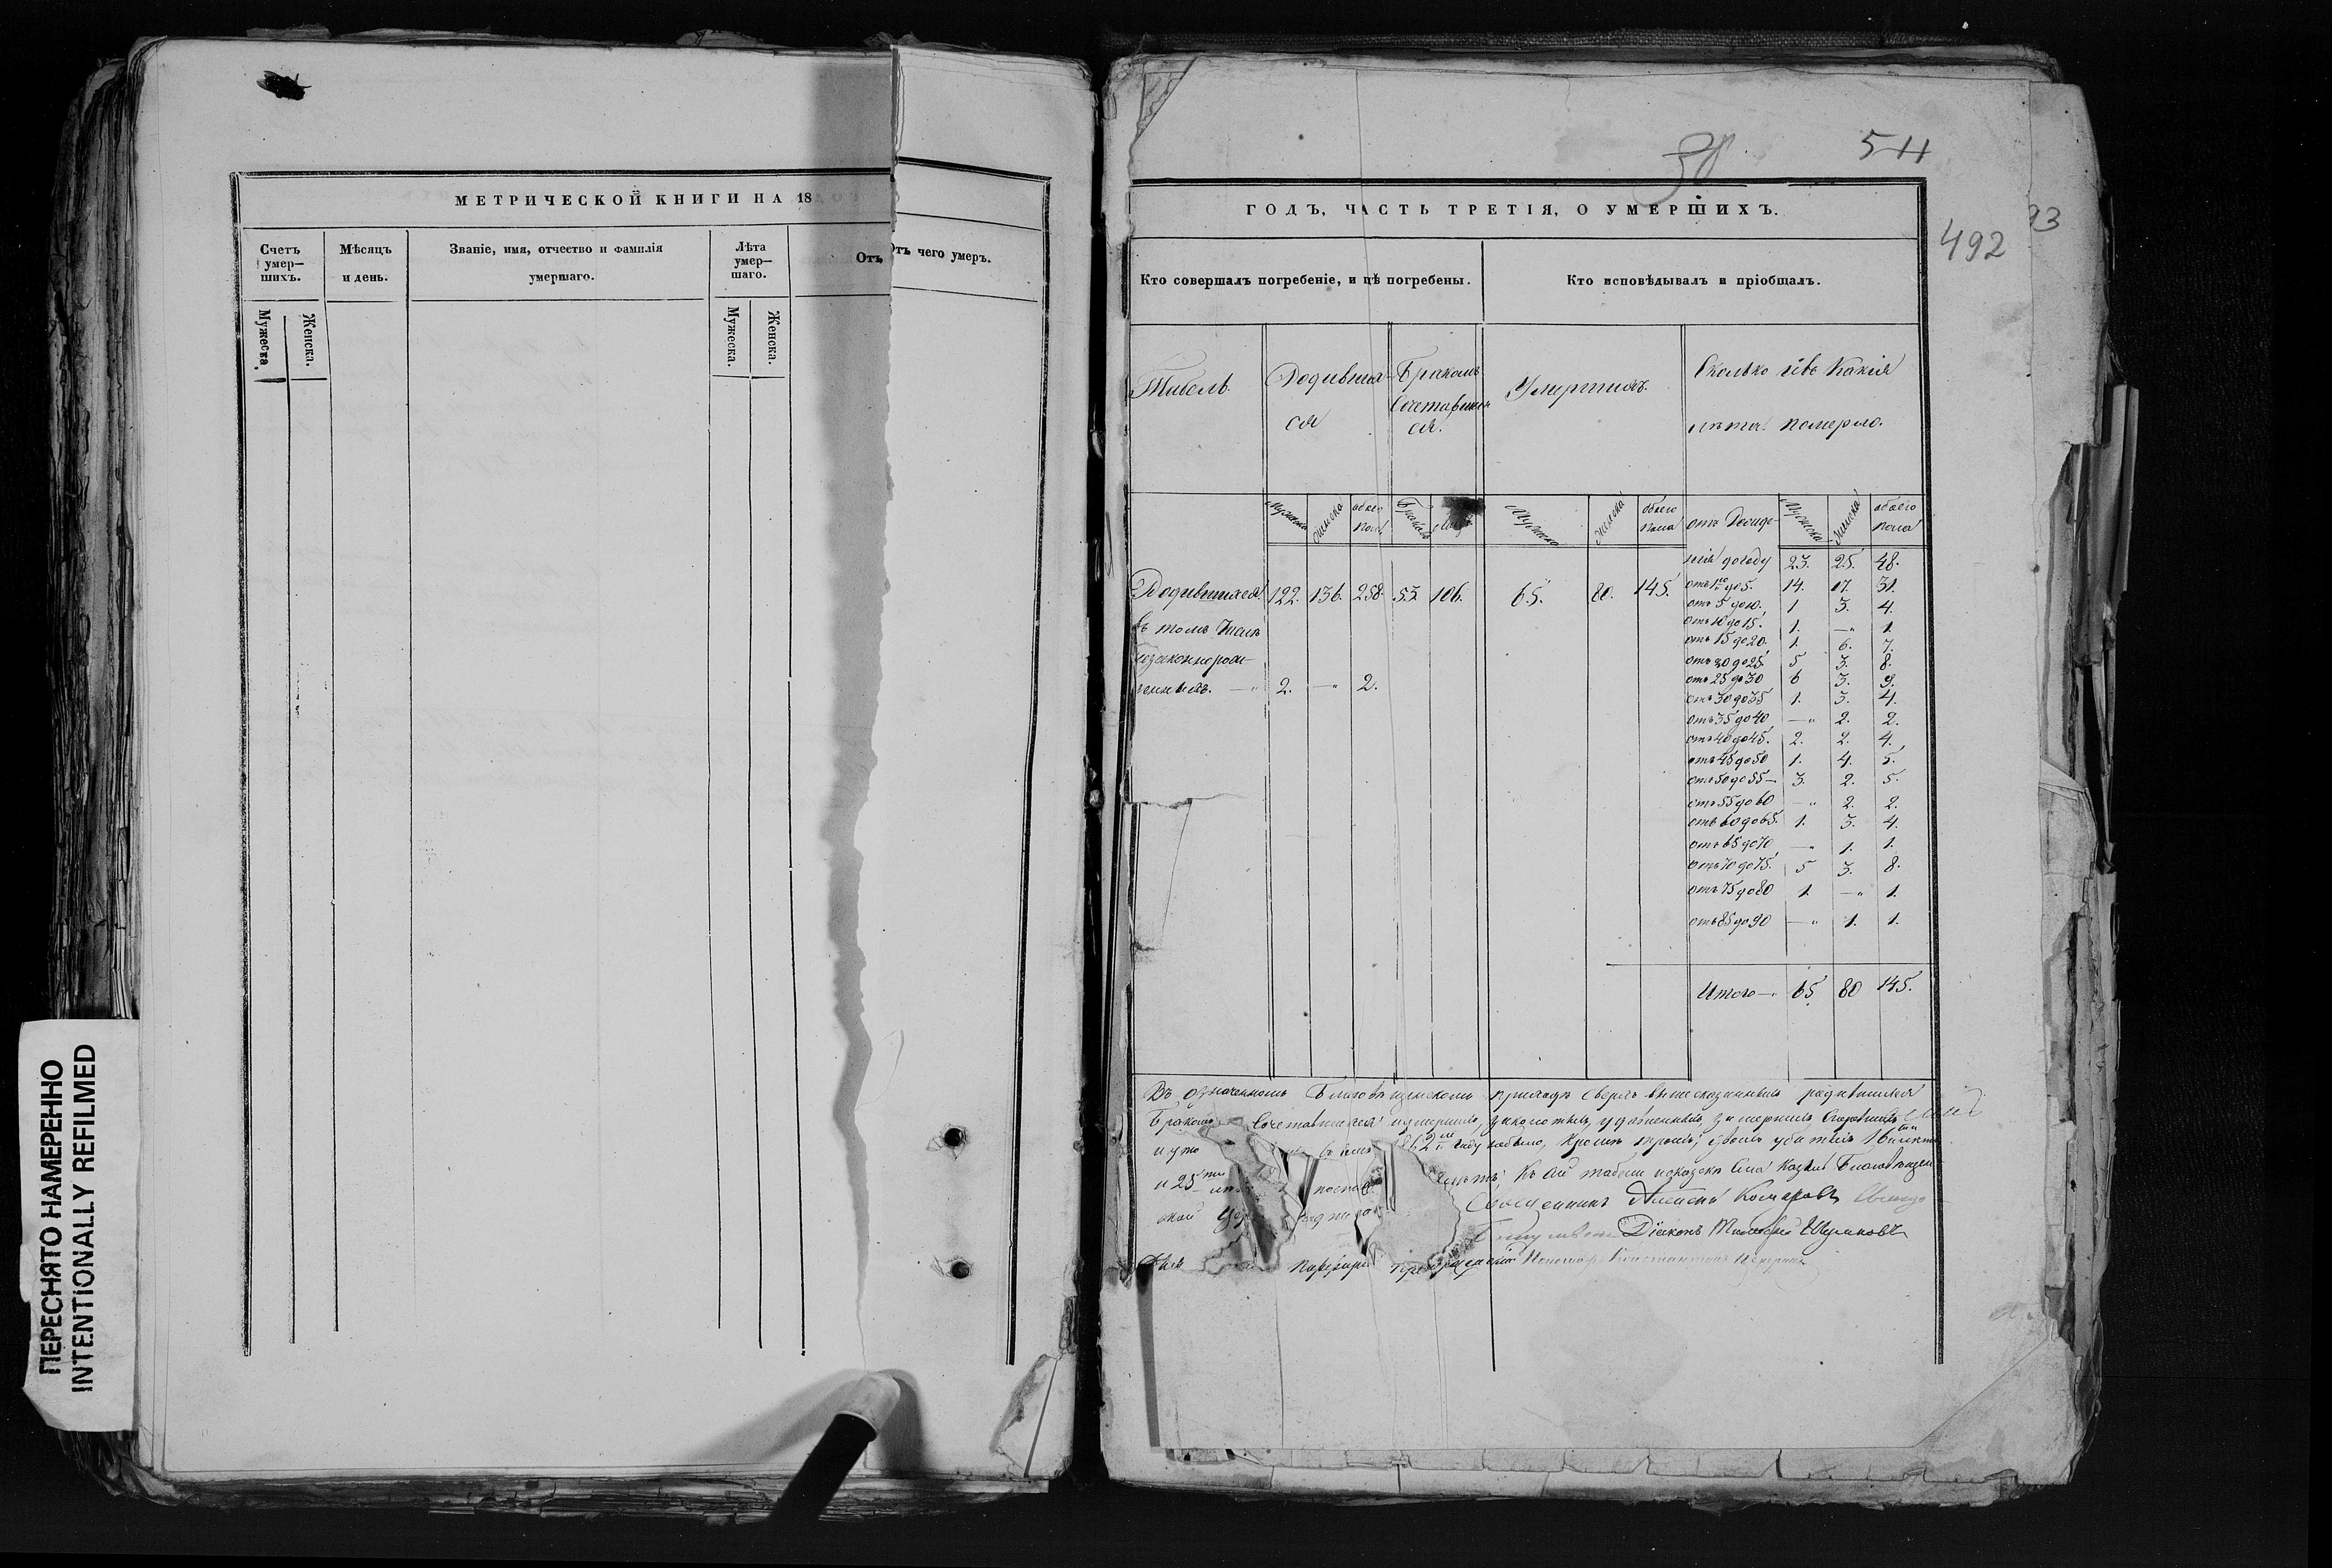 МЕТРИЧЕСКОЙ КНИГИ НА 18
Счетъ умер— шихъ.
Мужеска.
Женска.
Мѣсяцъ и день.
Званіе, имя, отчество и фамилія умершаго.
Лѣта умер— шаго.
Мужеска.
Женска.
Отъ
Отъ чего умеръ.
ПЕРЕСНЯТО НАМЕРЕННО
INTENTIONALLY REFILMED
511
492
93
ГОДЪ, ЧАСТЬ ТРЕТІЯ, О УМЕРШИХЪ.
Кто совершалъ погребеніе, и гдѣ погребены.
Кто исповѣдывалъ и пріобщалъ.
Табель.
Родивших
ся
Бракомъ
Сочетавших
ся.
Умершихъ.
Сколько въ какія
лѣта померло.
Мужеска
Женска
обоего пола
Браковъ
Лицъ
Мужеска
Женска
обоего пола
отъ Рожде-
Мужеска
Женска
обоего пола
нія до году 23. 25. 48.
Родившихся 122. 136. 258. 53. 106. 65. 80. 145.
отъ 1го до 5. 14. 17. 31.
отъ 5 до 10. 1 3. 4.
въ томъ числѣ
отъ 10 до 15. 1. —„ 1.
отъ 15 до 20. 1. 6. 7.
незаконнорож-
отъ 20 до 25 5 3. 8.
отъ 25 до 30 6 3. 9.
денныхъ. —„ 2. —„ 2.
отъ 30 до 35 1. 3. 4.
отъ 35 до 40 —„ 2. 2.
отъ 40 до 45. 2. 2. 4.
отъ 45 до 50 1. 4. 5.
отъ 50 до 55— 3. 2. 5.
отъ 55 до 60 —„ 2. 2.
отъ 60 до 65. 1. 3. 4.
отъ 65 до 70 —„ 1. 1.
отъ 70 до 75. 5 3. 8.
отъ 75 до 80 1. —„ 1.
отъ 85 до 90 —„ 1. 1.
Итого—„ 65 80 145.
Въ означенномъ Благовѣщенскомъ приходѣ сверхъ вышесказанныхъ родившихся
Бракомъ Сочетавшихся умершихъ,
1862м году небыло, кромѣ
и 25ти
Къ сей табели
Священникъ Алексѣй Комаровъ
Діаконъ Тимофей Шумиловъ
Порфирій Преображенскій Пономарь Константинъ